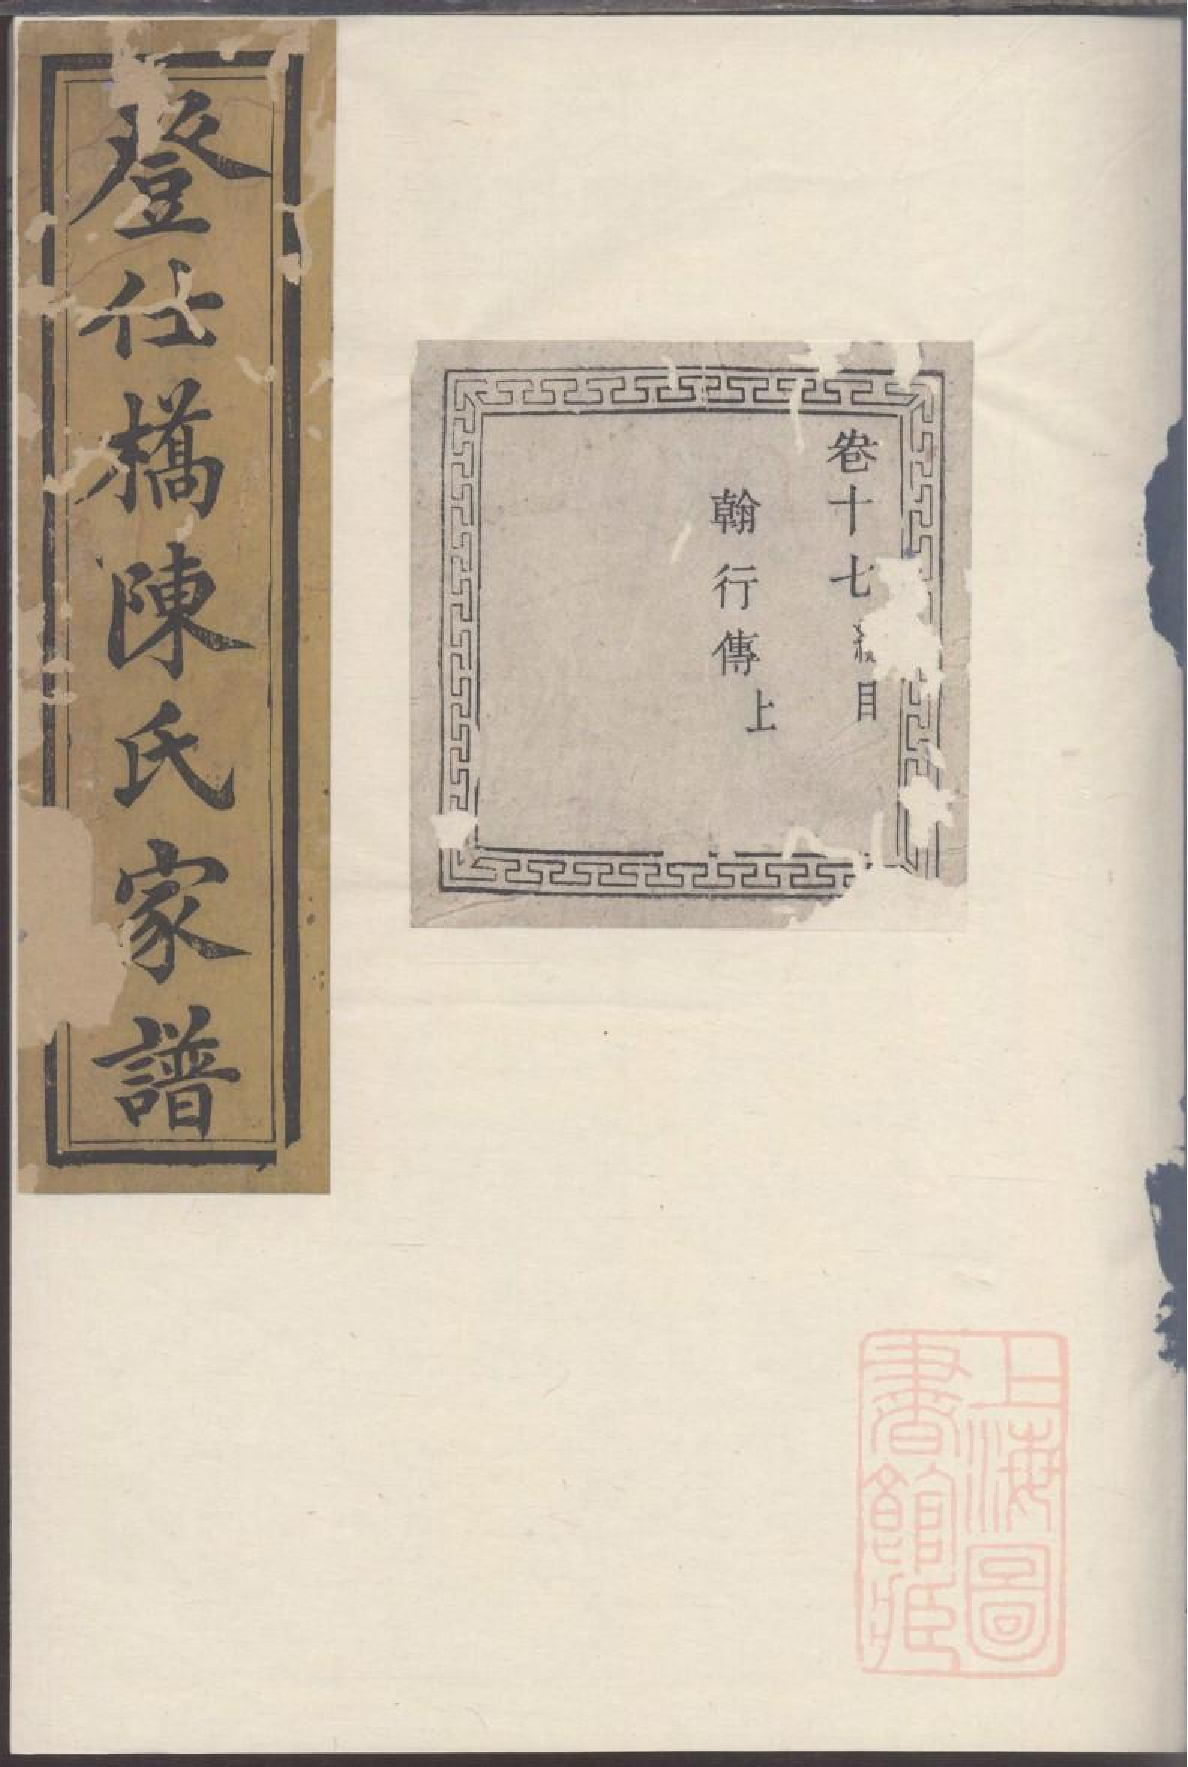 登仕橋陳氏家譜
卷十七 總目
翰行傳上
上海圖
書館藏